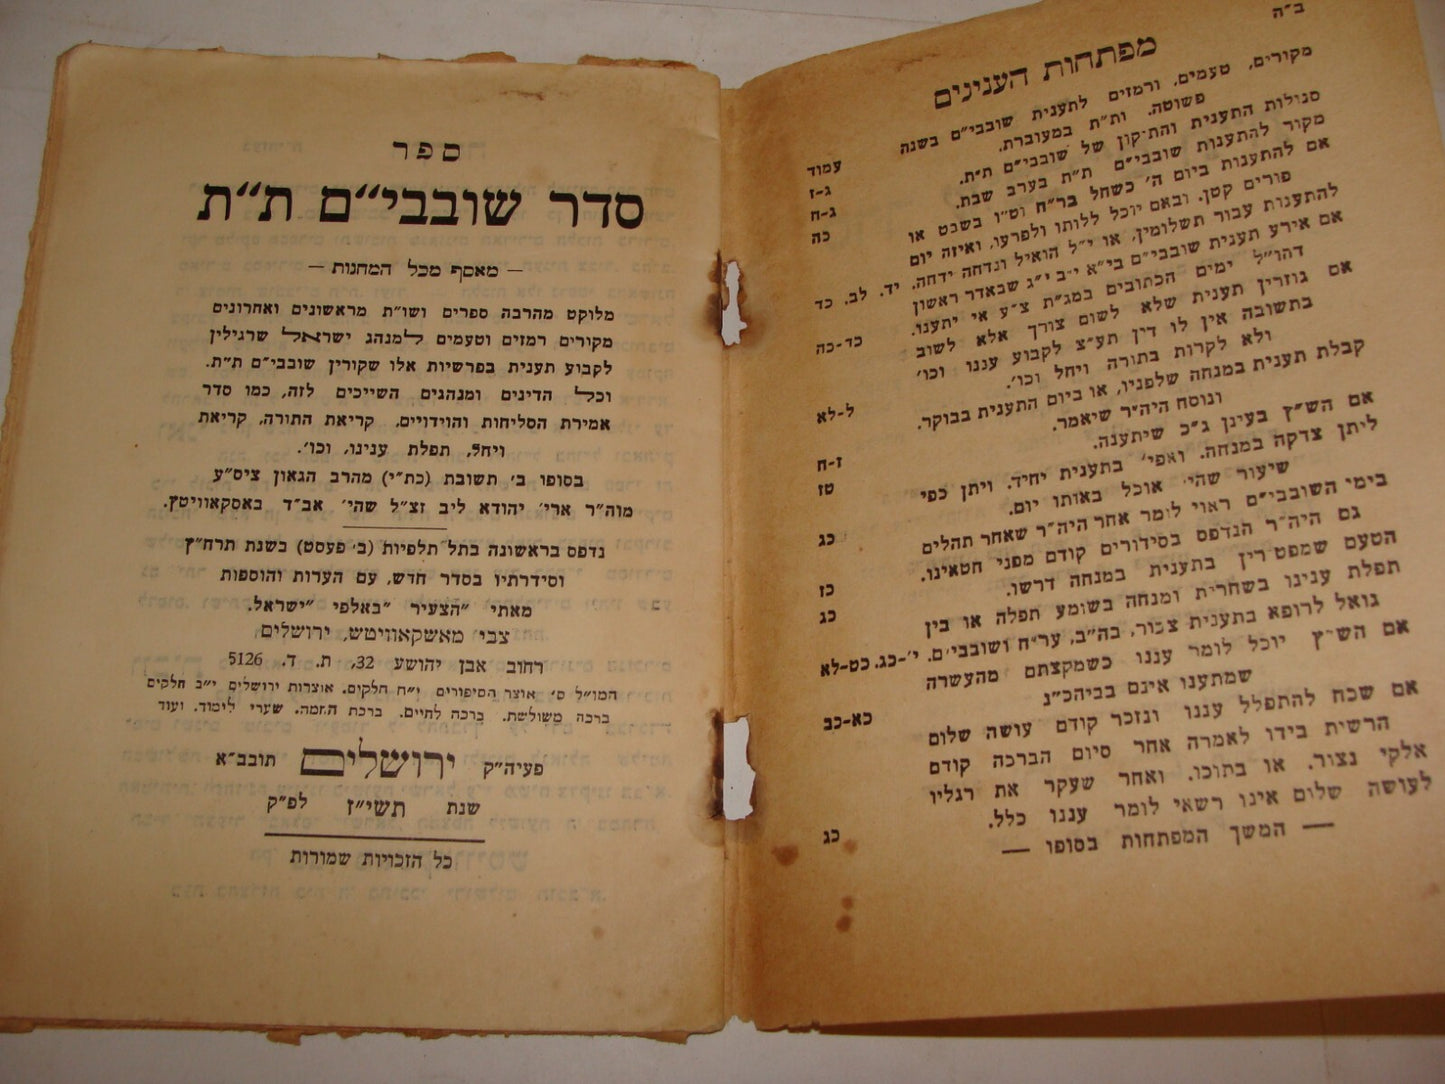 ספר
סדר שובבי״ם ת״ת
— מאסף מכל המחנות —
מלוקט מהרבה ספרים ושו״ת מראשונים ואחרונים
מקורים רמזים וטעמים למנהג ישראל שרגילין
לקבוע תענית בפרשיות אלו שקורין שובבי״ם ת״ת.
וכל הדינים ומנהגים השייכים לזה, כמו סדר
אמירת הסליחות והוידויים, קריאת התורה, קריאת
ויחל, תפלת ענינו, וכו׳.
בסופו ב׳ תשובת (כת״י) מהרב הגאון ציס״ע
מוה״ר ארי׳ יהודא ליב זצ״ל שהי׳ אב״ד באסקאוויטץ.
נדפס בראשונה בתל תלפיות (ב׳ פעסט) בשנת תרח״ץ
וסידרתיו בסדר חדש, עם הערות והוספות
מאתי ״הצעיר ״באלפי ״ישראל.
צבי מאשקאוויטש, ירושלים
רחוב אבן יהושע 32, ת. ד. 5126
המו״ל ס׳ אוצר הסיפורים י״ח חלקים. אוצרות ירושלים י״ב חלקים
ברכה משולשת. ברכה לחיים. ברכת החמה. שערי לימוד. ועוד
פעיה״ק ירושלים תובב״א
שנת תשי״ז לפ״ק
כל הזכויות שמורות
ב״ה
מפתחות הענינים
עמוד
מקורים, טעמים, ורמזים לתענית שובבי״ם בשנה
פשוטה. ות״ת במעוברת. ג-ז
סגולות התענית והתיקון של שובבי״ם ת״ת. ג-ח
מקור להתענות שובבי״ם ת״ת בערב שבת. כה
אם להתענות ביום ה׳ כשחל בר״ח וט״ו בשבט או
פורים קטן. ובאם יוכל ללותו ולפרעו, ואיזה יום
להתענות עבור תשלומין, או י״ל הואיל ונדחה ידחה. יד. לב. כד
אם אירע תענית שובבי״ם בי״א י״ב י״ג שבאדר ראשון
דהו״ל ימים הכתובים במג״ת צ״ע אי יתענו. כד-כה
אם גוזרין תענית שלא לשום צורך אלא לשוב
בתשובה אין לו דין תע״צ לקבוע עננו וכו׳
ולא לקרות בתורה ויחל וכו׳. ל-לא
קבלת תענית במנחה שלפניו, או ביום התענית בבוקר.
ונוסח היה״ר שיאמר. ז-ח
אם הש״ץ בעינן ג״כ שיתענה. טז
ליתן צדקה במנחה. ואפי׳ בתענית יחיד. ויתן כפי
שיעור שהי׳ אוכל באותו יום. כג
בימי השובבי״ם ראוי לומר אחר היה״ר שאחר תהלים
גם היה״ר הנדפס בסידורים קודם מפני חטאינו. כז
הטעם שמפטירין בתענית במנחה דרשו. כג
תפלת ענינו בשחרית ומנחה בשומע תפלה או בין
גואל לרופא בתענית צבור, בה״ב, ער״ח ושובבי״ם. י׳-כג. כט-לא
אם הש״ץ יוכל לומר עננו כשמקצתם מהעשרה
שמתענו אינם בביהכ״נ כא-כב
אם שכח להתפלל עננו ונזכר קודם עושה שלום
הרשית בידו לאמרה אחר סיום הברכה קודם
אלקי נצור. או בתוכו. ואחר שעקר את רגליו
לעושה שלום אינו רשאי לומר עננו כלל. כג
— המשך המפתחות בסופו —